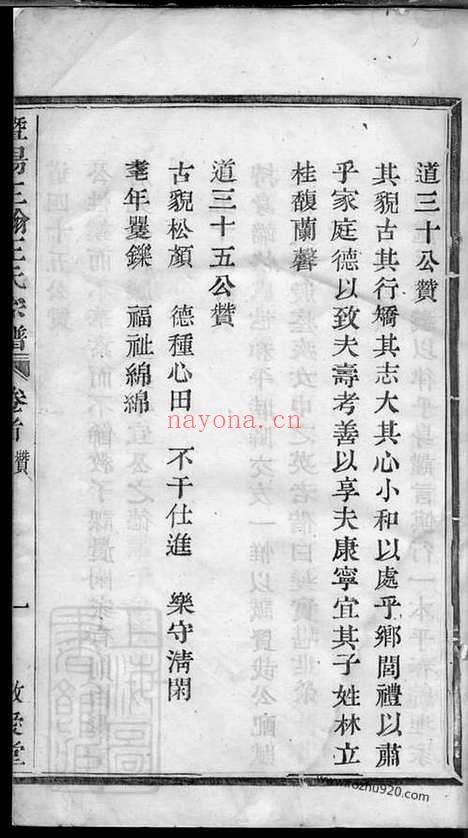 道三十公贊
其貌古其行矯其志大其心小和以處乎鄉閭禮以肅
乎家庭德以致夫壽考善以享夫康寧宜其子姓林立
桂馥蘭馨
道三十五公贊
古貌松顏 德種心田 不干仕進 樂守清閑
耄年矍鑠 福祉綿綿
暨陽王氏宗譜 卷首 贊 一
nayona.cn
www.kozhu920.com